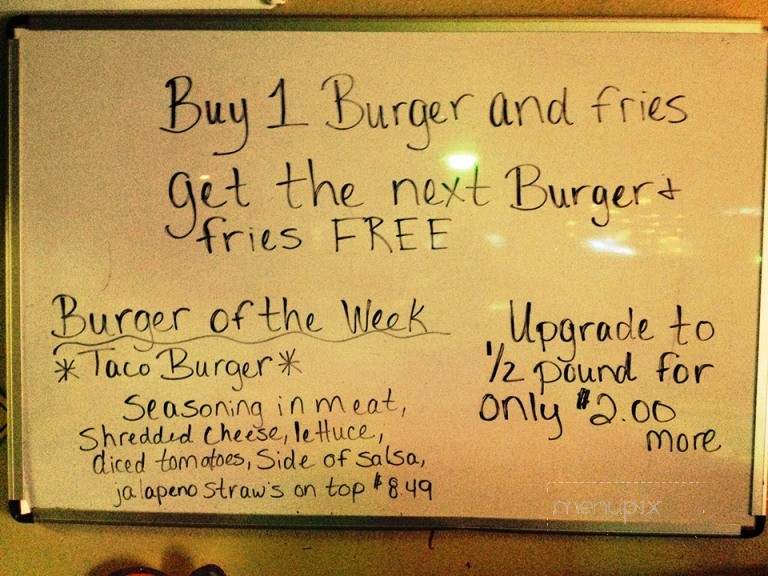 Buy 1 Burger and fries
get the next Burger +
fries FREE
Burger of the Week
*Taco Burger*
Seasoning in meat,
Shredded Cheese, lettuce,
diced tomatoes, Side of salsa,
jalapeno straw's on top $8.49
Upgrade to
1/2 pound for
only $2.00
more
menupix